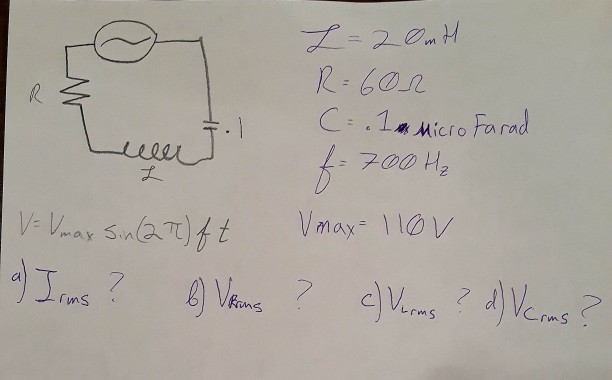 L = 20mH
R = 60Ω
R
C = .1 Micro Farad
.1
f = 700 Hz
L
V = Vmax sin(2π) f t
Vmax = 110V
a) Irms ?
b) VRrms ?
c) VLrms ?
d) VCrms ?